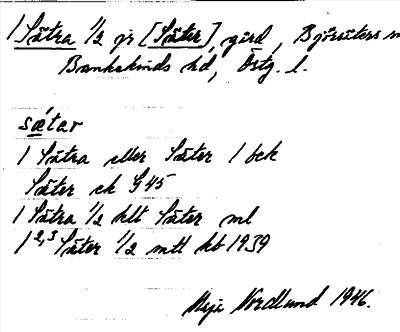 1 Sätra 1/2 jr [Säter], gård, Björsäters
Bankekinds hd, Östg. l.
sǽtar
1 Sätra eller Säter 1 bek
Säter ek G45
1 Sätra 1/2 hlt Säter ml
1 2,3 Säter 1/2 mtl kb 1939
Maja Nordlund 1946.